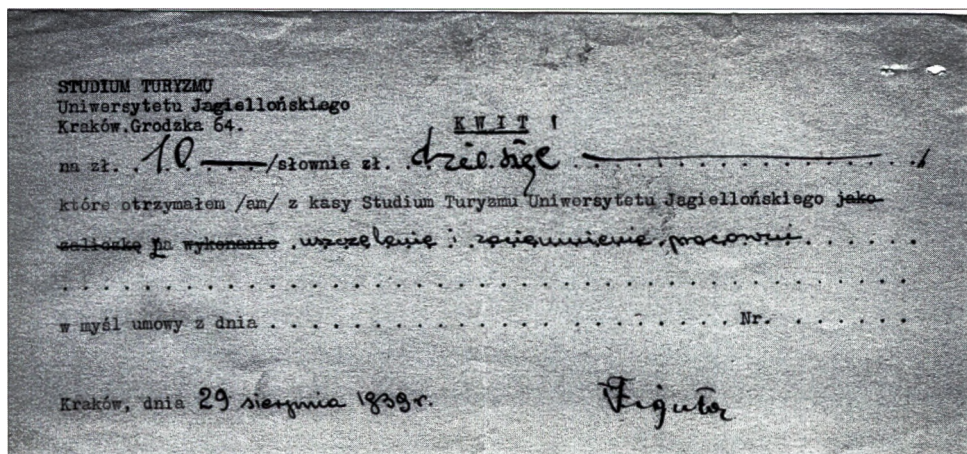 STUDIUM TURYZMU
Uniwersytetu Jagiellońskiego
Kraków.Grodzka 64.
K W I T !
na zł. . 10 . . . . /słownie zł. . dziesięć . . . . . . . . . . . . . . . . /
które otrzymałem /am/ z kasy Studium Turyzmu Uniwersytetu Jagiellońskiego jako
zaliczkę na wykonanie . uszczelnienie i zaciemnienie pracowni . . . . . .
. . . . . . . . . . . . . . . . . . . . . . . . . . . . . . . . . . . . . . . .
w myśl umowy z dnia . . . . . . . . . . . . . . . . . . . . . . Nr. . . . . . .
Kraków, dnia 29 sierpnia 1939 r.